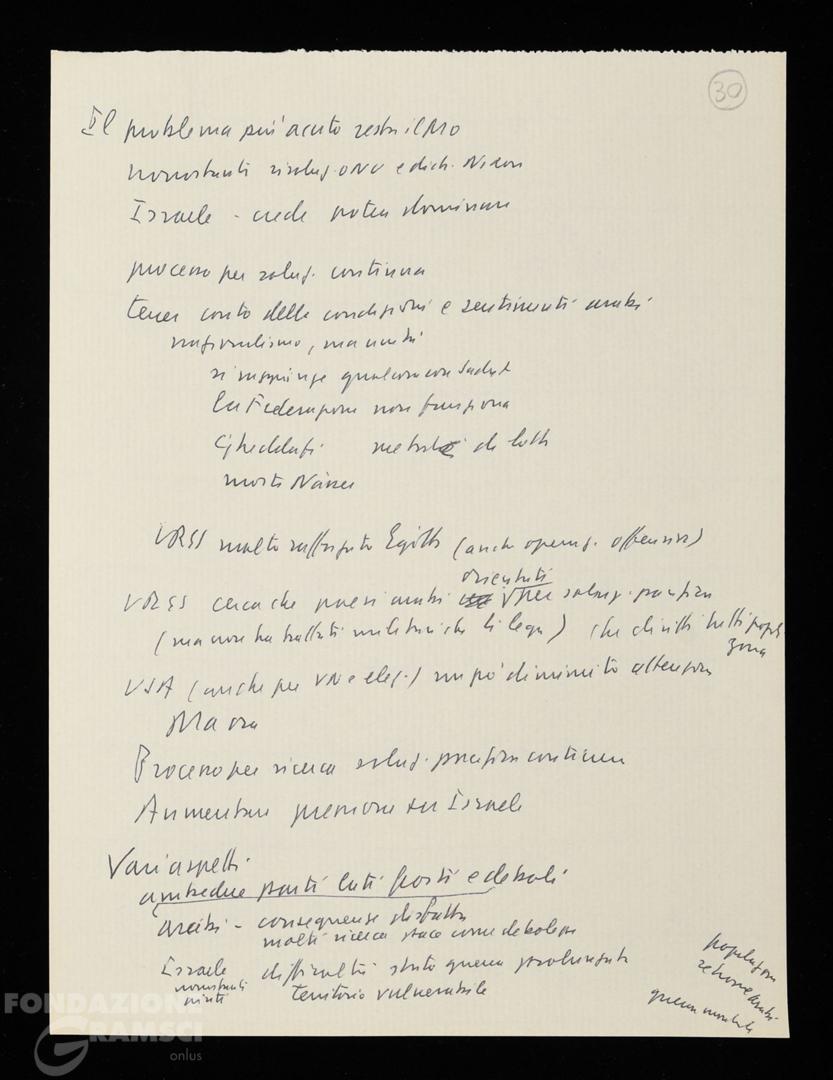 30
Il problema più acuto resta il MO
nonostante risoluz. ONU e dich. Nixon
Israele - crede poter dominare
processo per soluz. continua
tener conto delle condizioni e sentimenti arabi
nazionalismo, ma anche
si raggiunge qualcosa con Sadat
la Federazione non funziona
Gheddafi metodi di lotta
morte Nasser
URSS molto rafforzato Egitto (anche operaz. offensive)
orientati
URSS cerca che paesi arabi per soluz. pacifica
(ma non ha trattati militari che li lega) che diritti tutti popoli
zona
USA (anche per VN e elez.) un po' diminuito attenzione
Ma ora
Processo per ricerca soluz. pacifica continua
Aumentare pressione su Israele
Vari aspetti
ambedue parti lati forti e deboli
Arabi - conseguenze disfatta
molti ricerca pace come debolezza
Israele difficoltà stato guerra prolungata
nonostante territorio vulnerabile
popolazione
zone arabi
guerra
FONDAZIONE
GRAMSCI
onlus